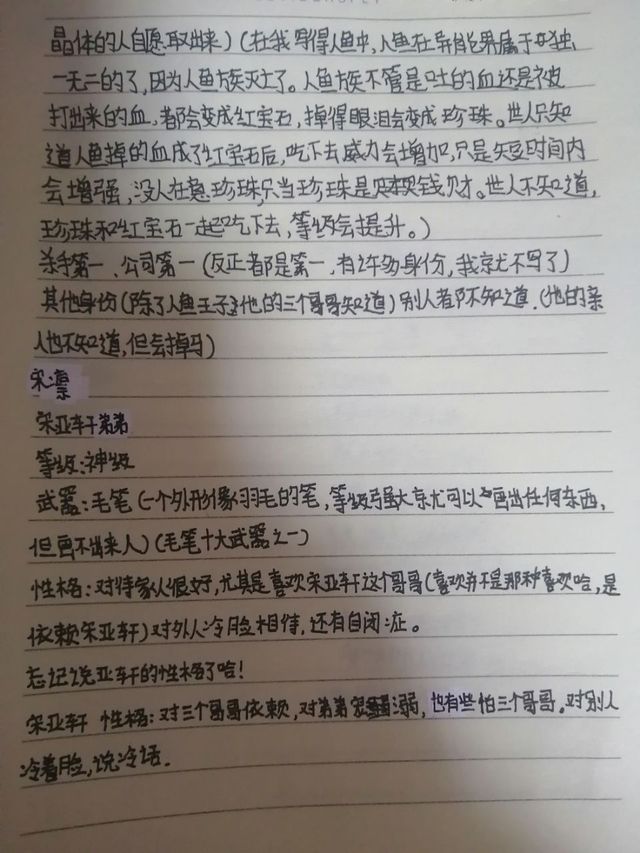 晶体的人自愿取出来)(在我写得人鱼中,人鱼在异能界属于独
一无二的了,因为人鱼族灭亡了。人鱼族不管是吐的血还是被
打出来的血.都会变成红宝石,掉得眼泪会变成珍珠。世人只知
道人鱼掉的血成了红宝石后,吃下去威力会增加,只是短时间内
会增强,没人在意珍珠,只当珍珠是钱财。世人不知道,
珍珠和红宝石一起吃下去,等级会提升。)
杀手第一、公司第一(反正都是第一,有许多身份,我就不写了)
其他身份(除了人鱼王子,他的三个哥哥知道)别人都不知道.(他的亲
人也不知道,但会掉马)
宋凛
宋亚轩弟弟
等级:神级
武器:毛笔(一个外形像羽毛的笔,等级强大就可以画出任何东西,
但画不出来人)(毛笔十大武器之一)
性格:对待家人很好,尤其是喜欢宋亚轩这个哥哥(喜欢并不是那种喜欢哈,是
依赖宋亚轩)对外人冷脸相待,还有自闭症。
忘记说亚轩的性格了哈!
宋亚轩 性格:对三个哥哥依赖,对弟弟宠溺,也有些怕三个哥哥。对别人
冷着脸,说冷话.